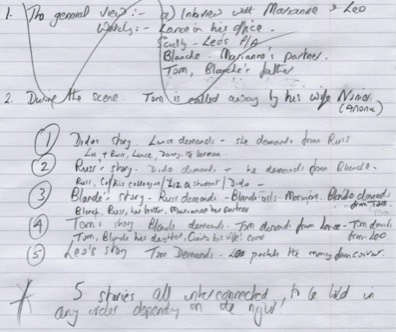 1. The general view:- a) Interview with Marianne & Leo
Watch:- Lance in his office.
Scully - Leo's P/A
Blanche - Marianne's partner.
Tom, Blanche's father
2. During the scene Tom is called away by his wife Nina
(Anonu)
1 Dido's story. Lance demands - she demands from Russ
+ Russ, Lance, Danny,
2 Russ's story. Dido demands - he demands from Blanche.
Russ, his colleague / Liz a student / Dido -
3 Blanche's story - Russ demands - Blanche demands
from Tom
Blanch, Russ, her brother, Marianne her partner
4 Tom's story Blanche demands - Tom demands from Lance - Tom demands
from Leo
Tom, Blanche his daughter, his wife's
5 Leo's story Tom Demands - Leo pockets the money
5 stories all interconnected, to be told in
any order depending on the night.